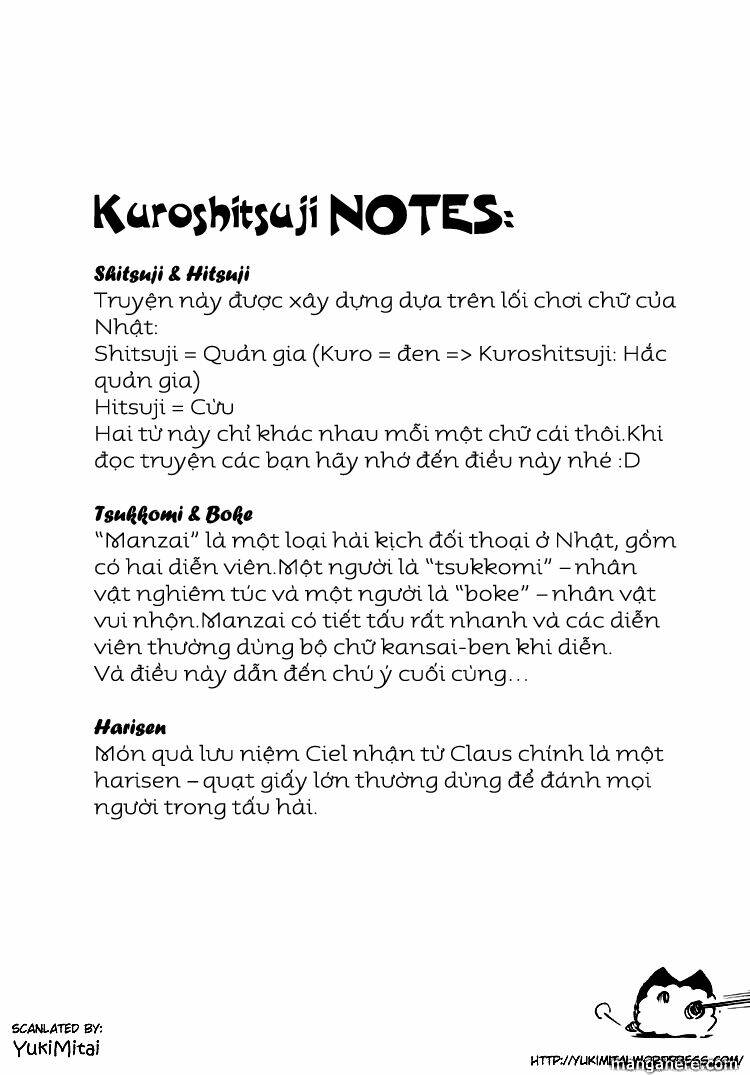 Kuroshitsuji NOTES:
Shitsuji & Hitsuji
Truyện này được xây dựng dựa trên lối chơi chữ của
Nhật:
Shitsuji = Quản gia (Kuro = đen => Kuroshitsuji: Hắc
quản gia)
Hitsuji = Cừu
Hai từ này chỉ khác nhau mỗi một chữ cái thôi.Khi
đọc truyện các bạn hãy nhớ đến điều này nhé :D
Tsukkomi & Boke
“Manzai” là một loại hài kịch đối thoại ở Nhật, gồm
có hai diễn viên.Một người là “tsukkomi” – nhân
vật nghiêm túc và một người là “boke” – nhân vật
vui nhộn.Manzai có tiết tấu rất nhanh và các diễn
viên thường dùng bộ chữ kansai-ben khi diễn.
Và điều này dẫn đến chú ý cuối cùng...
Harisen
Món quà lưu niệm Ciel nhận từ Claus chính là một
harisen – quạt giấy lớn thường dùng để đánh mọi
người trong tấu hài.
SCANLATED BY:
YukiMitai
HTTP://YUKIMITAI.WORDPRESS.COM/
mangahere.com